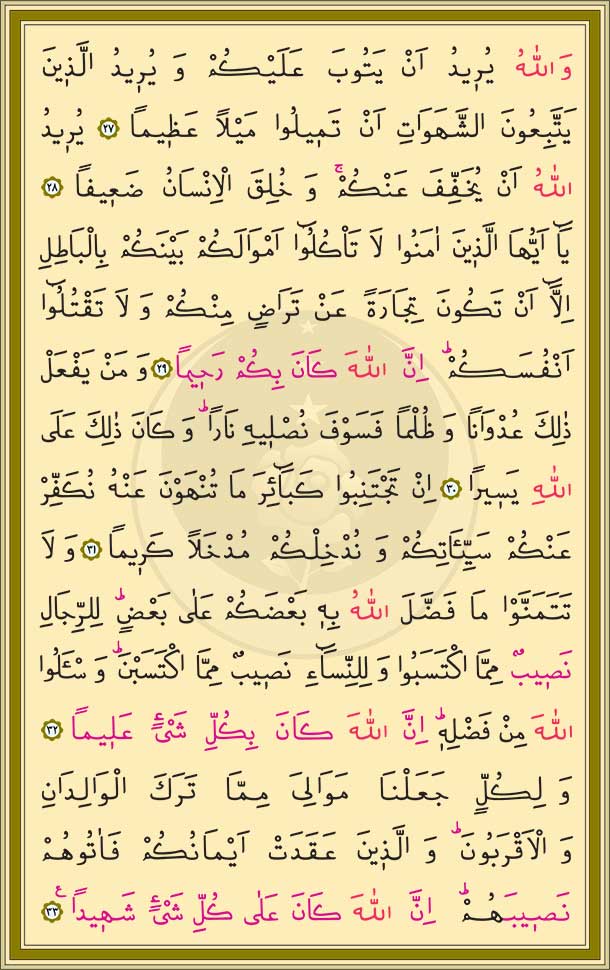 وَاللّٰهُ يُر۪يدُ اَنْ يَتُوبَ عَلَيْكُمْ وَ يُر۪يدُ الَّذ۪ينَ
يَتَّبِعُونَ الشَّهَوَاتِ اَنْ تَم۪يلُوا مَيْلاً عَظ۪يمًا ﴿٢٧﴾ يُر۪يدُ
اللّٰهُ اَنْ يُخَفِّفَ عَنْكُمْۚ وَ خُلِقَ الْاِنْسَانُ ضَع۪يفًا ﴿٢٨﴾
يَٓا اَيُّهَا الَّذ۪ينَ اٰمَنُوا لَا تَاْكُلُٓوا اَمْوَالَكُمْ بَيْنَكُمْ بِالْبَاطِلِ
اِلَّٓا اَنْ تَكُونَ تِجَارَةً عَنْ تَرَاضٍ مِنْكُمْ وَ لَا تَقْتُلُٓوا
اَنْفُسَكُمْؕ اِنَّ اللّٰهَ كَانَ بِكُمْ رَح۪يمًا ﴿٢٩﴾ وَ مَنْ يَفْعَلْ
ذٰلِكَ عُدْوَانًا وَ ظُلْمًا فَسَوْفَ نُصْل۪يهِ نَارًاؕ وَ كَانَ ذٰلِكَ عَلَى
اللّٰهِ يَس۪يرًا ﴿٣٠﴾ اِنْ تَجْتَنِبُوا كَبَٓائِرَ مَا تُنْهَوْنَ عَنْهُ نُكَفِّرْ
عَنْكُمْ سَيِّـَٔاتِكُمْ وَ نُدْخِلْكُمْ مُدْخَلاً كَر۪يمًا ﴿٣١﴾ وَ لَا
تَتَمَنَّوْا مَا فَضَّلَ اللّٰهُ بِه۪ بَعْضَكُمْ عَلٰى بَعْضٍؕ لِلرِّجَالِ
نَص۪يبٌ مِمَّا اكْتَسَبُوا وَ لِلنِّسَٓاءِ نَص۪يبٌ مِمَّا اكْتَسَبْنَؕ وَ سْـَٔلُوا
اللّٰهَ مِنْ فَضْلِه۪ؕ اِنَّ اللّٰهَ كَانَ بِكُلِّ شَیْءٍ عَل۪يمًا ﴿٣٢﴾
وَ لِكُلٍّ جَعَلْنَا مَوَالِیَ مِمَّا تَرَكَ الْوَالِدَانِ
وَ الْاَقْرَبُونَؕ وَ الَّذ۪ينَ عَقَدَتْ اَيْمَانُكُمْ فَاٰتُوهُمْ
نَص۪يبَهُمْؕ اِنَّ اللّٰهَ كَانَ عَلٰى كُلِّ شَیْءٍ شَه۪يدًاع ﴿٣٣﴾